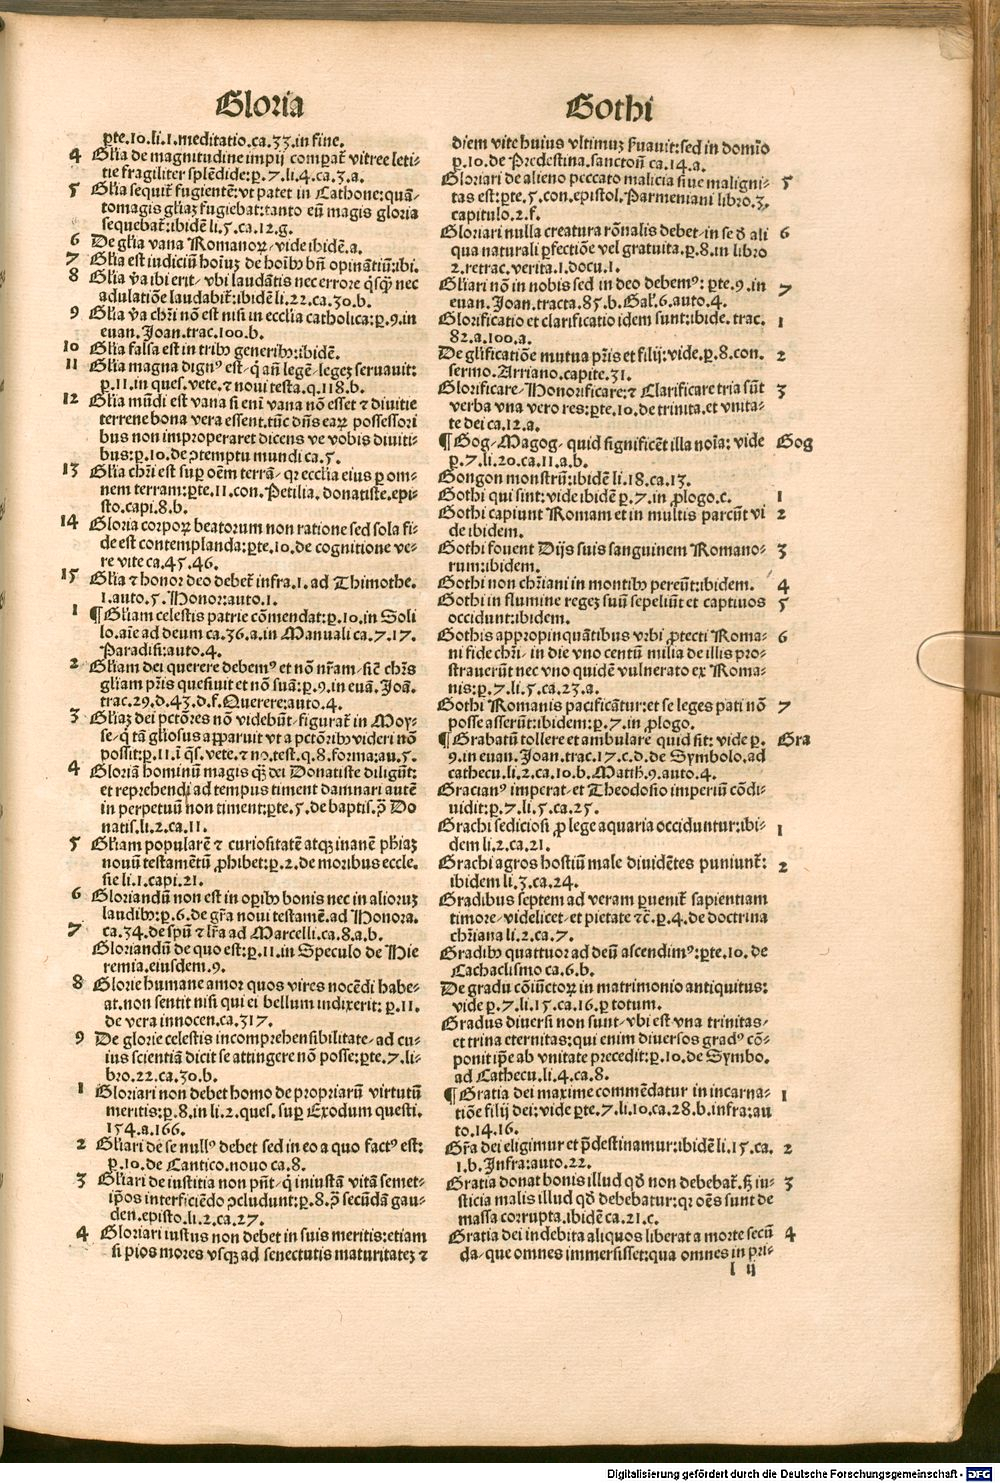 Gloria
pte.10.li.1.meditatio.ca.33.in fine.
4 Gl̄ia de magnitudine impij compat̄ vitree leti⸗
tie fragiliter splēdide:p.7.li.4.ca.3.a.
5 Gl̄ia sequit̄ fugientē:vt patet in Cathone:quā⸗
tomagis gl̄iaꝫ fugiebat:tanto eū magis gloria
sequebat̄:ibidē li.5.ca.12.g.
6 De gl̄ia vana Romanoꝝ/vide ibidē.a.
7 Gl̄ia est iudiciū hoīuꝫ de hoībꝰ bn̄ opinātiū:ibi.
8 Gl̄ia v̄a ibi erit/vbi laudātis nec errore q̄sqꝫ nec
adulatiōe laudabit̄:ibidē li.22.ca.30.b.
9 Gl̄ia v̄a chr̄i nō est nisi in eccl̄ia catholica:ꝑ.9.in
euan.Joan.trac.100.b.
10 Gl̄ia falsa est in tribꝰ generibꝰ:ibidē.
11 Gl̄ia magna dignꝰ est/q̄ an̄ legē/legeꝫ seruauit:
ꝑ.11.in ques.vete.⁊ noui testa.q.118.b.
12 Gl̄ia mūdi est vana si eni vana nō esset ⁊ diuitie
terrene bona vera essent.tūc dn̄s eaꝝ possessori
bus non improperaret dicens ve vobis diuiti⸗
bus:ꝑ.10.de ꝯtemptu mundi ca.5.
13 Gl̄ia chr̄i est suꝑ oēm terrā/qꝛ eccl̄ia eius ꝑ om⸗
nem terram:ꝑte.11.con.Petilia.donatiste.epi⸗
sto.capi.8.b.
14 Gloria corpoꝝ beatorum non ratione sed sola fi⸗
de est contemplanda:ꝑte.10.de cognitione ve⸗
re vite ca.45.46.
15 Gl̄ia ⁊ honor deo debet̄ infra.1.ad Thimothe.
1.auto.5.Honor:auto.1.
1 ¶Gl̄iam celestis patrie cōmendat:ꝑ.10.in Soli
lo.aīe ad deum ca.36.a.in Manuali ca.7.17.
Paradisi:auto.4.
2 Gl̄iam dei querere debemꝰ et nō nr̄am/sic̄ chr̄s
gl̄iam pr̄is quesiuit et nō suā:ꝑ.9.in euā.Joā.
trac.29.d.43.d.f.Querere:auto.4.
3 Gl̄iaꝫ dei pctōres nō videbūt/figurat̄ in Moy⸗
se/q̄ tā gl̄iosus apparuit vt a pctōribꝰ videri nō
possit:ꝑ.11.ī q̄s.vete.⁊ no.test.q.8.forma:au.5.
4 Gloriā hominū magis qꝫ dei Donatiste diligūt:
et reprehendi ad tempus timent damnari autē
in perpetuū non timent:ꝑte.5.de baptis.ꝯ Do
natis.li.2.ca.11.
5 Gl̄iam popularē ⁊ curiositatē atqꝫ inanē ph̄iaꝫ
nouū testamētū ꝓhibet:ꝑ.2.de moribus eccle.
sie li.1.capi.21.
6 Gloriandū non est in opibꝰ bonis nec in alioruꝫ
laudibꝰ:ꝑ.6.de gr̄a noui testamē.ad Honora.
7 ca.34.de spū ⁊ lr̄a ad Marcelli.ca.8.a.b.
Gloriandū de quo est:ꝑ.11.in Speculo de Hie
remia.eiusdem.9.
8 Glorie humane amor quos vires nocēdi habe⸗
at.non sentit nisi qui ei bellum indixerit: ꝑ.11.
de vera innocen.ca.317.
9 De glorie celestis incomprehensibilitate/ad cu⸗
ius scientiā dicit se attingere nō posse:ꝑte.7.li⸗
bro.22.ca.30.b.
1 Gloriari non debet homo de propriarū virtutū
meritis:ꝑ.8.in li.2.ques.suꝑ Exodum questi.
154.a.166.
2 Gl̄iari de se nullꝰ debet sed in eo a quo factꝰ est:
ꝑ.10.de Cantico.nouo ca.8.
3 Gl̄iari de iustitia non pn̄t/q̄ iniustā vitā semet⸗
ip̄os interficiēdo ꝯcludunt:ꝑ.8.ꝯ secūdā gau⸗
den.episto.li.2.ca.27.
4 Gloriari iustus non debet in suis meritis:etiam
si pios mores vsqꝫ ad senectutis maturitateꝫ ⁊
Gothi
diem vite huius vltimuꝫ ẜuauit:sed in domīo
ꝑ.10.de Predestina.sanctoꝝ ca.14.a.
Gloriari de alieno peccato malicia siue maligni⸗ 5
tas est:ꝑte.5.con.epistol.Parmeniani libro.3.
capitulo.2.f.
Gloriari nulla creatura rōnalis debet/in se ꝺ ali 6
qua naturali ꝑfectiōe vel gratuita.ꝑ.8.in libro
2.retrac.verita.1.docu.1.
Gl̄iari nō in nobis sed in deo debemꝰ: ꝑte.9.in 7
euan.Joan.tracta.85.b.Gal̄.6.auto.4.
Glorificatio et clarificatio idem sunt:ibide.trac. 1
82.a.100.a.
De gl̄ificatiōe mutua pr̄is et filij:vide.ꝑ.8.con. 2
sermo.Arriano.capite.31.
Glorificare/Honorificare:⁊ Clarificare tria sūt 3
verba vna vero res:ꝑte.10.de trinita.et vnita⸗
te dei ca.12.a.
¶Gog/Magog/quid significēt illa noīa: vide Gog
ꝑ.7.li.20.ca.11.a.b.
Gongon monstrū:ibidē li.18.ca.13.
Gothi qui sint:vide ibidē ꝑ.7.in ꝓlogo.c. 1
Gothi capiunt Romam et in multis parcūt vi 2
de ibidem.
Gothi fouent Dijs suis sanguinem Romano⸗ 3
rum:ibidem.
Gothi non chr̄iani in montibꝰ pereūt:ibidem. 4
Gothi in flumine regeꝫ suū sepeliūt et captiuos 5
occidunt:ibidem.
Gothis appropinquātibus vrbi ꝓtecti Roma⸗ 6
ni fide chr̄i/in die vno centū milia de illis pro⸗
strauerūt nec vno quidē vulnerato ex Roma⸗
nis:ꝑ.7.li.5.ca.23.a.
Gothi Romanis pacificātur:et se leges pati nō 7
posse asserūt:ibidem:ꝑ.7.in ꝓlogo.
¶Grabatū tollere et ambulare quid sit: vide ꝑ. Gra
9.in euan.Joan.trac.17.c.d.de Symbolo.ad
cathecu.li.2.ca.10.b.Math̄.9.auto.4.
Gracianꝰ imperat/et Theodosio imperiū cōdi⸗
uidit:ꝑ.7.li.5.ca.25.
Grachi sediciosi ꝓ lege aquaria occiduntur:ibi⸗ 1
dem li.2.ca.21.
Grachi agros hostiū male diuidētes puniunt̄: 2
ibidem li.3.ca.24.
Gradibus septem ad veram ꝑuenit̄ sapientiam
timore/videlicet/et pietate ⁊c̄.ꝑ.4.de doctrina
chr̄iana li.2.ca.7.
Gradibꝰ quattuor ad deū ascendimꝰ:ꝑte.10.de
Cachaclismo ca.6.b.
De gradu cōiūctoꝝ in matrimonio antiquitus:
vide ꝑ.7.li.15.ca.16.ꝑ totum.
Gradus diuersi non sunt/vbi est vna trinitas/
et trina eternitas:qui enim diuersos gradꝰ cō⸗
ponit ip̄e ab vnitate precedit:ꝑ.10.de Symbo.
ad Cathecu.li.4.ca.8.
¶Gratia dei maxime commēdatur in incarna⸗ 1
tiōe filij dei:vide ꝑte.7.li.10.ca.28.b.infra:au
to.14.16.
Gr̄a dei eligimur et p̄destinamur:ibidē li.15.ca. 2
1.b.Infra:auto.22.
Gratia donat bonis illud qꝺ non debebat̄.ꝫ iu⸗ 3
sticia malis illud qꝺ debebatur:qꝛ oēs sunt de
massa corrupta.ibidē ca.21.c.
Gratia dei indebita aliquos liberat a morte secū 4
da/que omnes immersisset:qua omnes in pri⸗
l ij
Digitalisierung gefördert durch die Deutsche Forschungsgemeinschaft - DFG